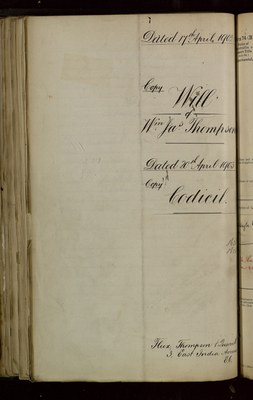 Dated 17th April, 190
Copy
Will
of
Wm Jas Thompson
Dated 20th April 190
Copy
Codicil.
Thompson &
3 East India Avenue
EC